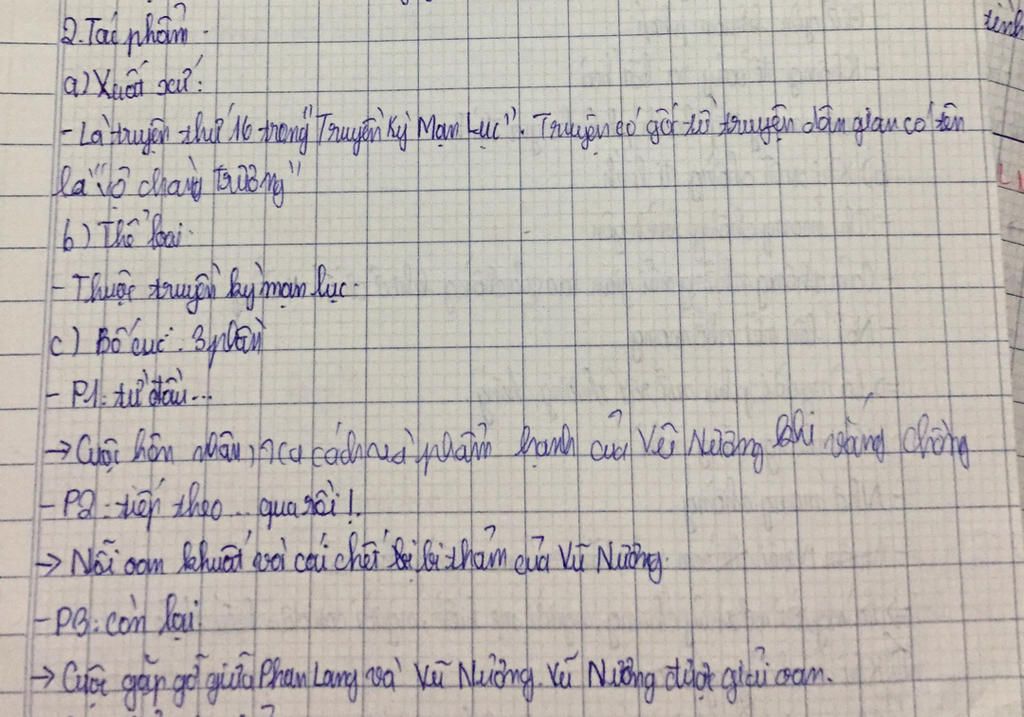 2. Tác phẩm.
tình
a) Xuất xứ:
- Là truyện thứ 16 trong "Truyền Kỳ Mạn Lục". Truyện có gốc từ truyện dân gian có tên
là "vợ chàng trương"
b) Thể loại.
- Thuộc truyền kỳ mạn lục.
c) Bố cục: 3 phần
- P1: từ đầu...
→ Cuộc hôn nhân, xa cách và phẩm hạnh của Vũ Nương khi vắng chồng
- P2: tiếp theo... qua rồi!.
→ Nỗi oan khuất và cái chết bi thảm của Vũ Nương.
- P3: còn lại
→ Cuộc gặp gỡ giữa Phan Lang và Vũ Nương. Vũ Nương được giải oan.